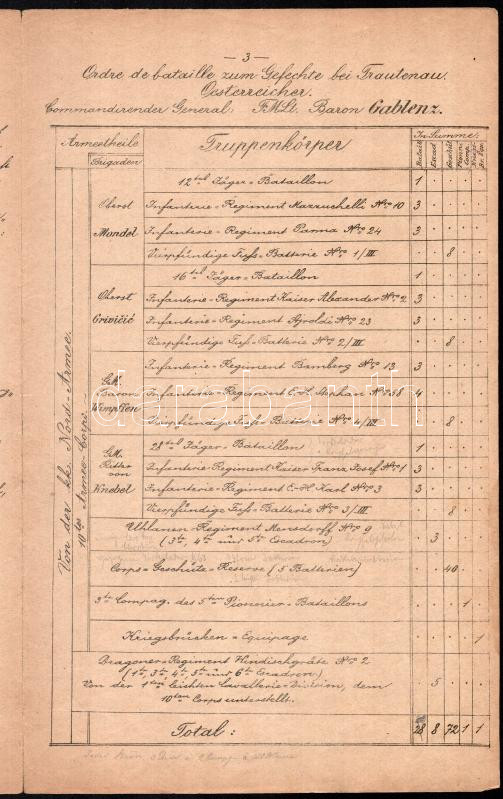 — 3 —
Ordre de bataille zum Gefechte bei Trautenau.
Oesterreicher.
Commandirender General: FMLt. Baron Gablenz.
Armeetheile Truppenkörper In Summe:
Brigaden Batail. Escad. Geschütz.
Von der kk. Nord-Armee.
10tes Armee-Corps
Oberst Mondel
12tes Jäger-Bataillon 1 · · · ·
Infanterie-Regiment Mazzuchelli Nro 10 3 · · · ·
Infanterie-Regiment Parma Nro 24 3 · · · ·
Vierpfündige Fuß-Batterie Nro 1/III · · 8 · ·
Oberst Grivičić
16tes Jäger-Bataillon 1 · · · ·
Infanterie-Regiment Kaiser Alexander Nro 2 3 · · · ·
Infanterie-Regiment Airoldi Nro 23 3 · · · ·
Vierpfündige Fuß-Batterie Nro 2/III · · 8 · ·
GM. Baron Wimpffen
Infanterie-Regiment Bamberg Nro 13 3 · · · ·
Infanterie-Regiment E.-H. Stephan Nro 58 4 · · · ·
Vierpfündige Fuß-Batterie Nro 4/III · · 8 · ·
GM. Ritter von Knebel
28tes Jäger-Bataillon 1 · · · ·
Infanterie-Regiment Kaiser Franz Josef Nro 1 3 · · · ·
Infanterie-Regiment E.-H. Karl Nro 3 3 · · · ·
Vierpfündige Fuß-Batterie Nro 3/III · · 8 · ·
Uhlanen-Regiment Mensdorff Nro 9
(3te, 4te und 5te Escadron) · 3 · · ·
Corps-Geschütz-Reserve (5 Batterien) · · 40 · ·
3te Compag. des 5ten Pionnier-Bataillons · · · 1 ·
Kriegsbrücken-Equipage · · · · 1
Dragoner-Regiment Windischgrätz Nro 2
(1te, 3te, 4te, 5te und 6te Escadron)
Von der 1ten leichten Cavallerie-Division, dem · 5 · · ·
10ten Corps unterstellt.
Total: 28 8 72 1 1
darabanth